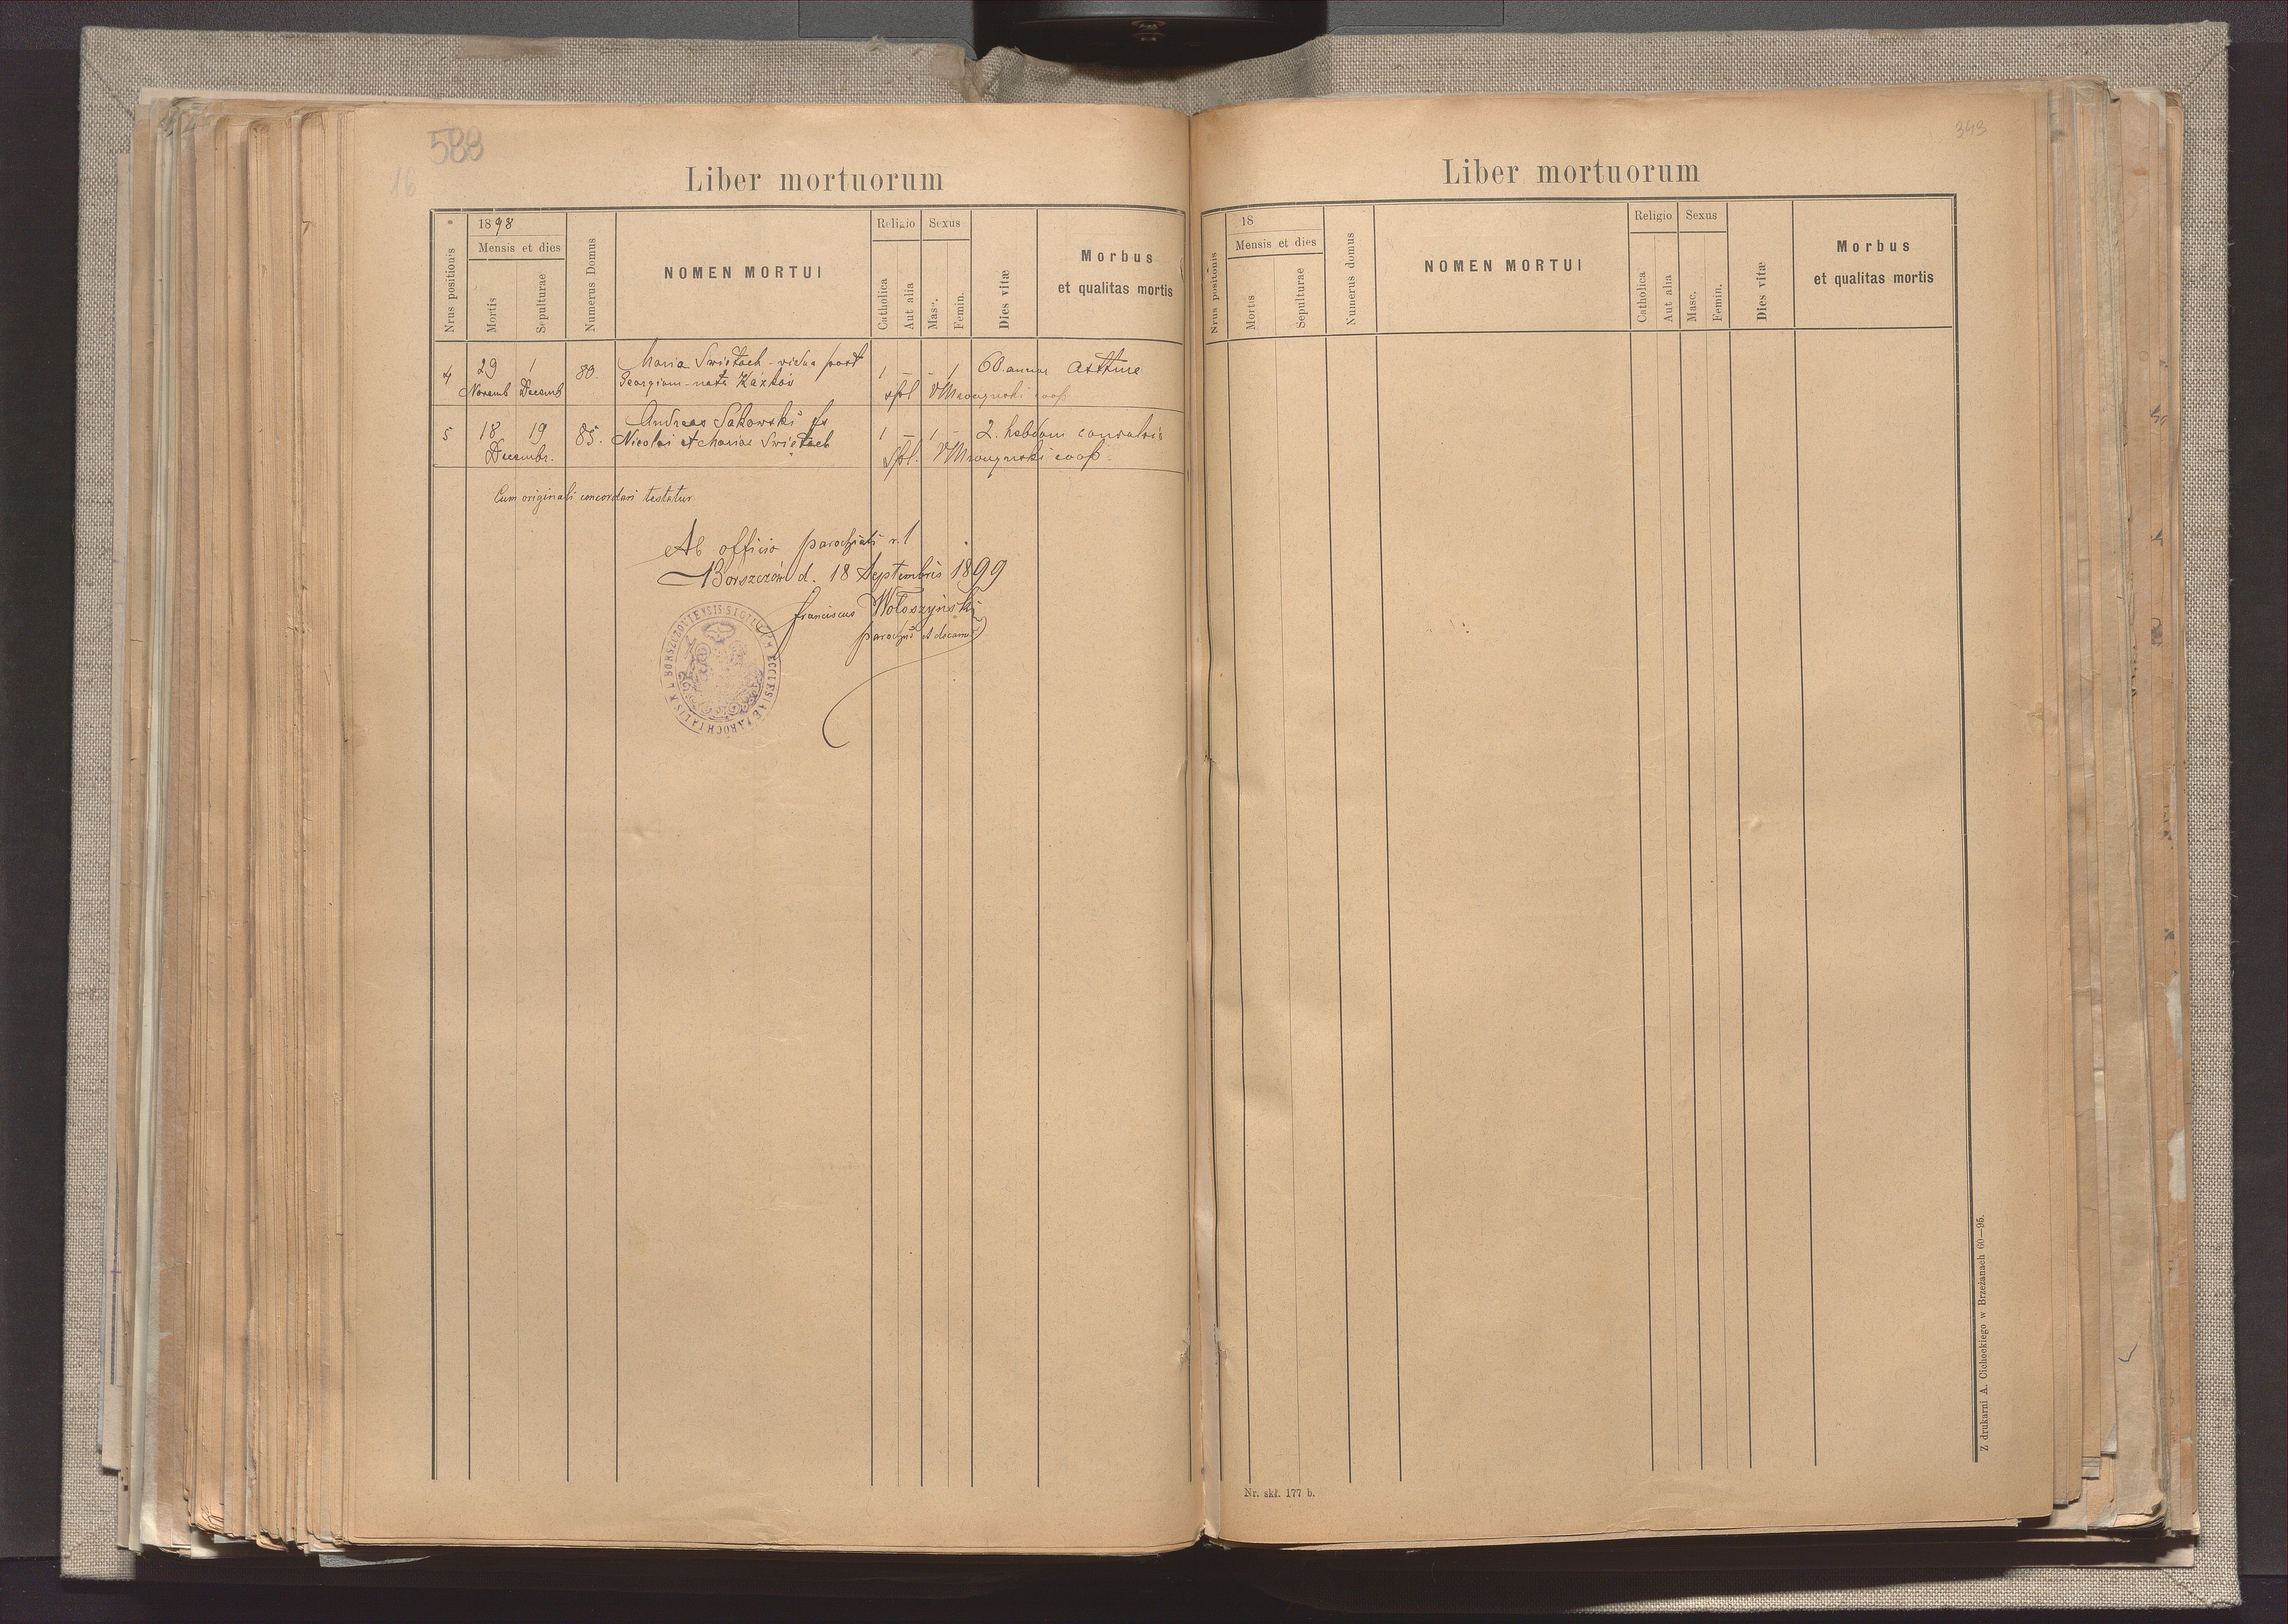 588
16
Liber mortuorum
Nrus positionis
1898
Mensis et dies
Mortis
Sepulturae
Numerus Domus
NOMEN MORTUI
Religio
Catholica
Aut alia
Sexus
Masc.
Femin.
Dies vitæ
Morbus
et qualitas mortis
4 29 1 80. Maria Swiętach - vidua post 1 - - 1 60. annor
Novemb Decemb Georgium - nata spl coop.
5 18 19 85. Andreas Sakowski fs 1 - 1 - 2. hebdom
Decembr. Nicolai et Mariae Swiętach spl. coop.
Cum originali concordari testatur
Ab officio parochiali r. l
Borszczów d. 18 Septembris 1899
Franciscus Wołoszyński
parochus et decanus
SIGILLUM ECCLESIAE PAROCHIALIS R. L. BORSZCZOVIENSIS
343
Liber mortuorum
Nrus positonis
18
Mensis et dies
Mortis
Sepulturae
Numerus domus
NOMEN MORTUI
Religio
Catholica
Aut alia
Sexus
Masc.
Femin.
Dies vitæ
Morbus
et qualitas mortis
Z drukarni A. Cichockiego w Brzeżanach 60—95.
Nr. skł. 177 b.